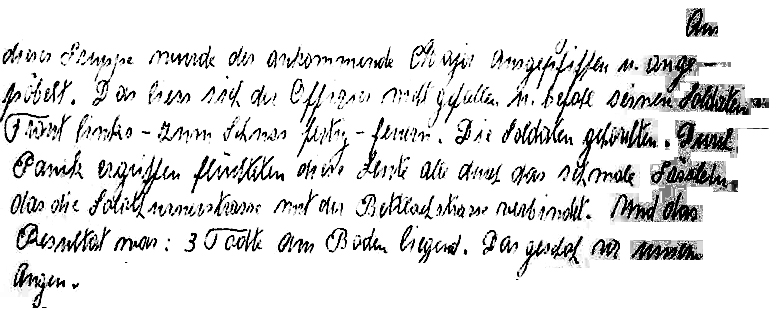 Aus
dieser Gruppe wurde der ankommende Major ausgepfiffen u. ange-
pöbelt. Das liess sich der Offizier nicht gefallen u. befahl seinen Soldaten
Front links - zum Schuss fertig - feuern. Die Soldaten gehorchten. Durch
Panik ergriffen flüchteten diese Leute alle durch das schmale Gässlein,
das die Solothurnerstrasse mit der Bettlachstrasse verbindet. Und das
Resultat war: 3 Todte am Boden liegend. Das geschah vor unseren
Augen.